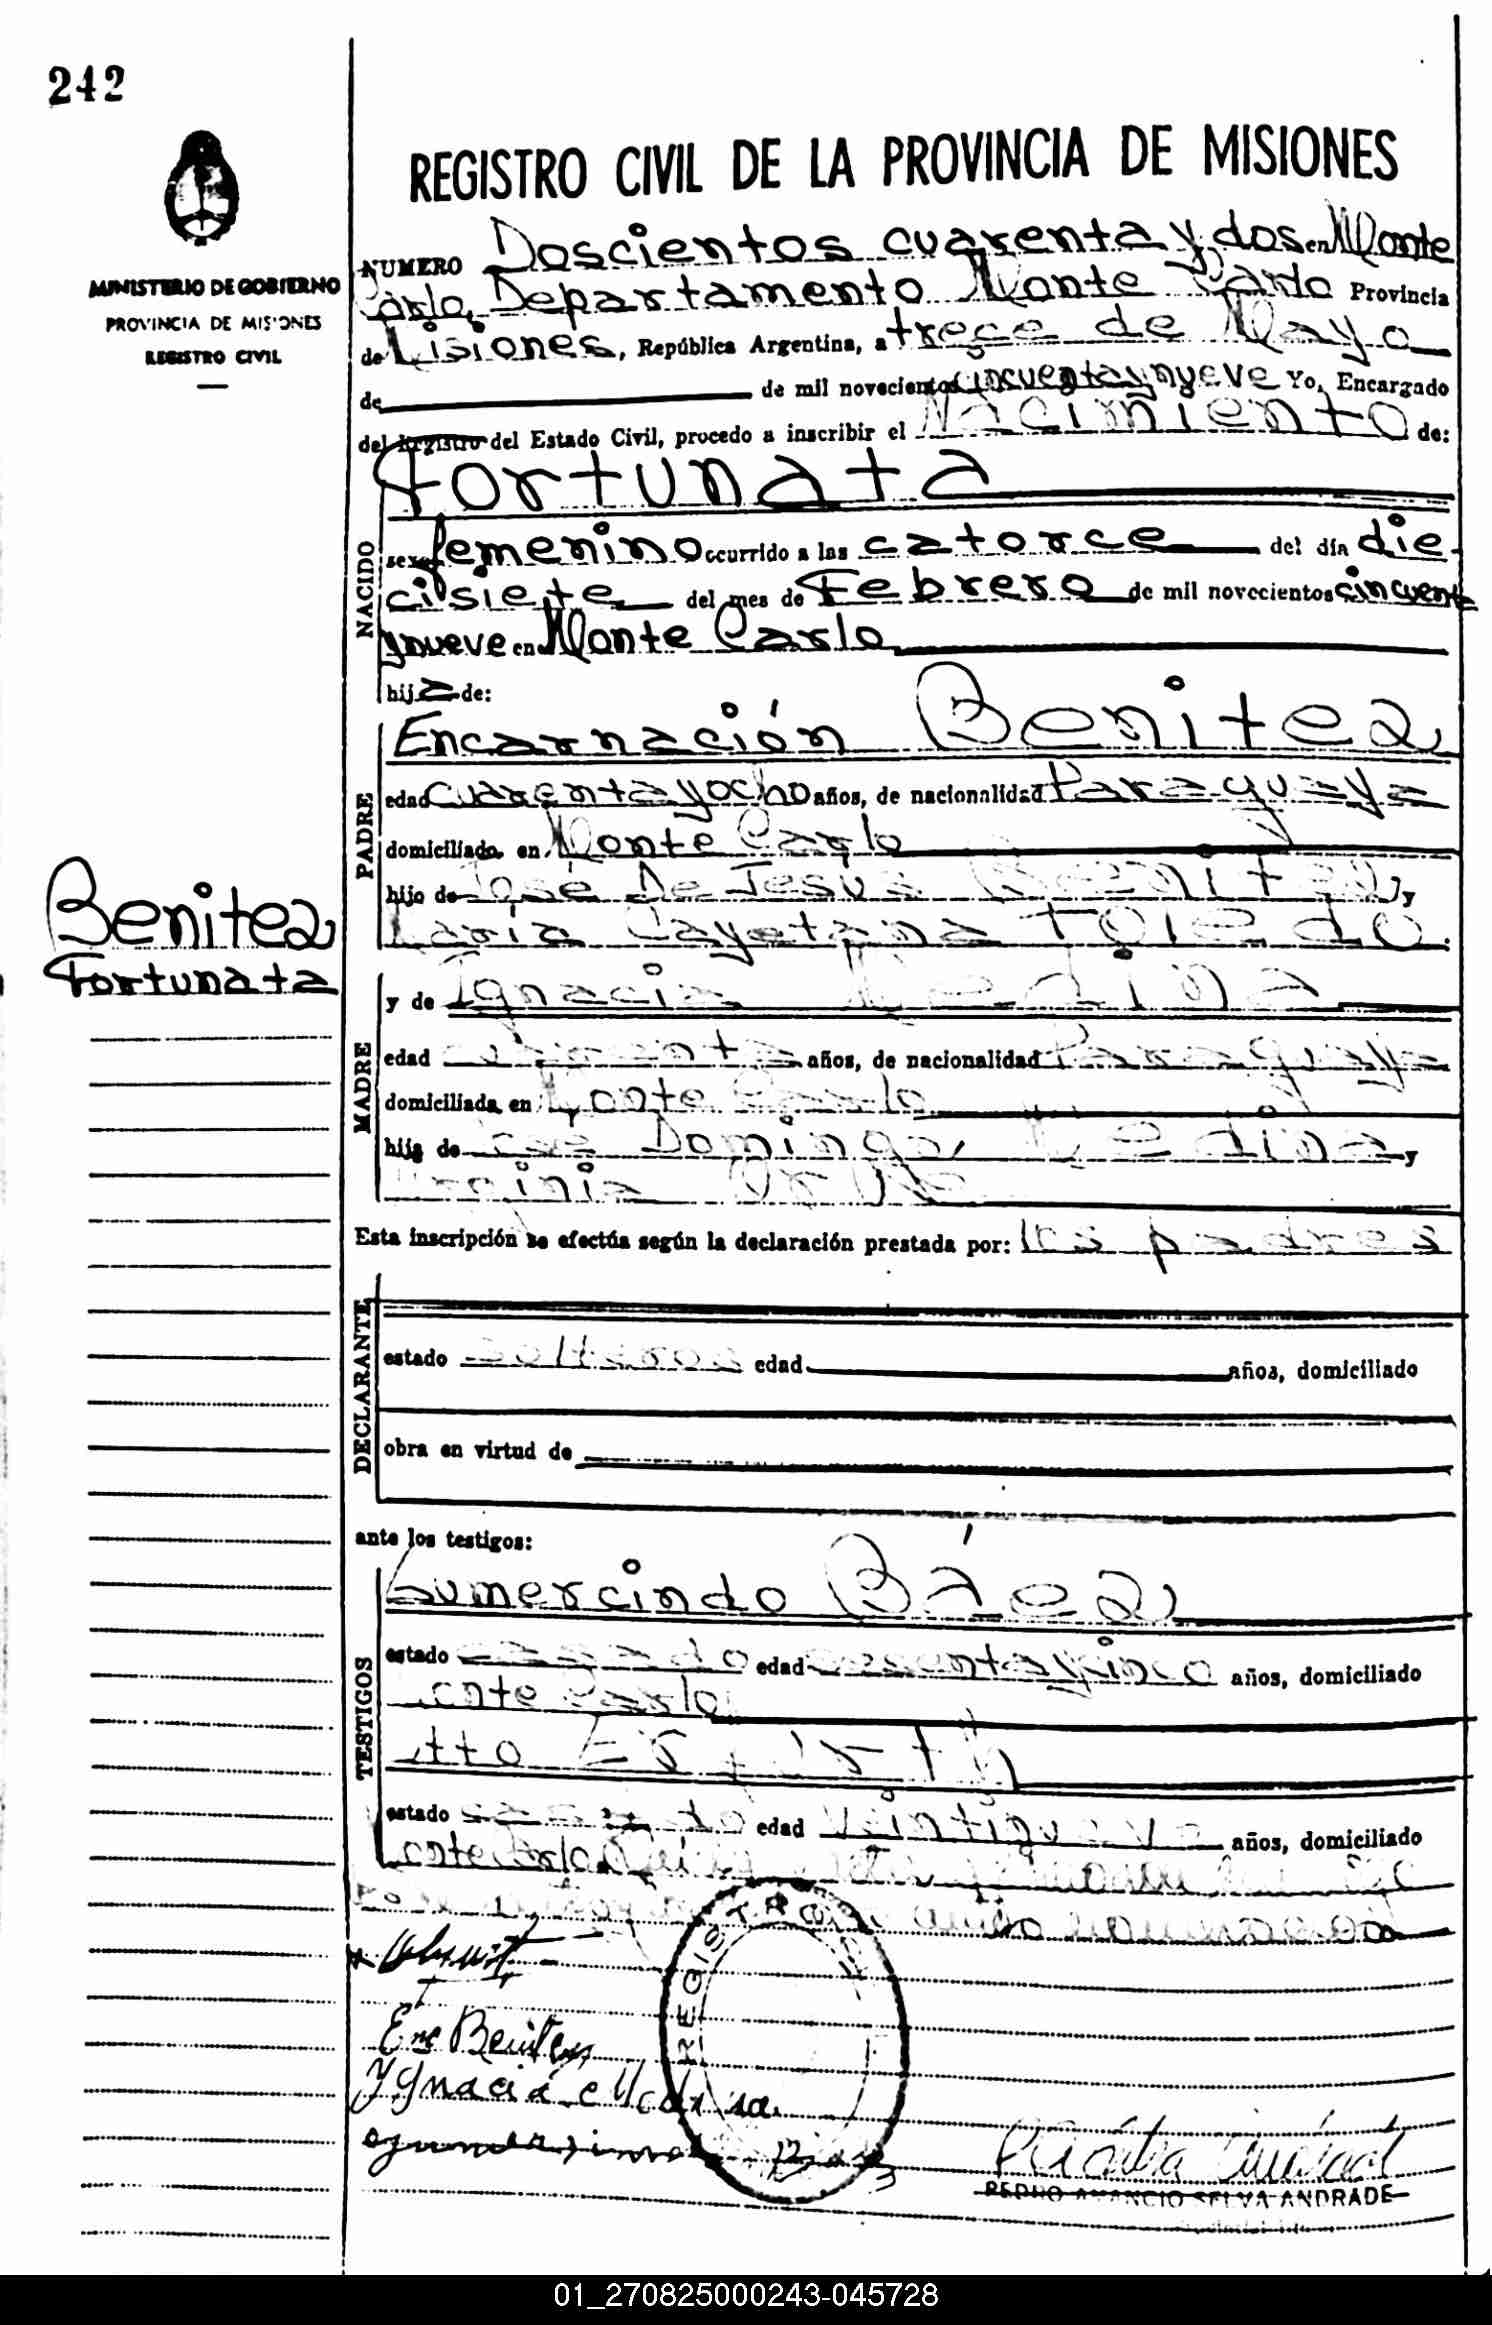 242
MINISTERIO DE GOBIERNO
PROVINCIA DE MISIONES
REGISTRO CIVIL
REGISTRO CIVIL DE LA PROVINCIA DE MISIONES
NUMERO Doscientos cuarenta y dos en Monte
Carlo Departamento Monte Carlo Provincia
de Misiones, República Argentina, a trece de Mayo
de de mil novecientos cincuentaynueve Yo, Encargado
del Registro del Estado Civil, procedo a inscribir el Nacimiento de:
Fortunata
NACIDO
sexo femenino ocurrido a las catorce del día die
cisiete del mes de Febrero de mil novecientos cincuenta
ynueve en Monte Carlo
hija de:
Encarnación Benitez
PADRE
edad cuarentayocho años, de nacionalidad Paraguaya
domiciliado en Monte Carlo
hijo de José De Jesus Benitez y
María Cayetana Toledo
Benitez
Fortunata
y de Ignacia Medina
MADRE
edad años, de nacionalidad Paraguaya
domiciliada en Monte Carlo
hija de Domingo Medina y
Esta inscripción se efectúa según la declaración prestada por: los padres
DECLARANTE
estado solteros edad años, domiciliado
obra en virtud de
ante los testigos:
Gumercindo Báez
TESTIGOS
estado casado edad años, domiciliado
Monte Carlo
Otto
estado casado edad veintinueve años, domiciliado
Monte Carlo
REGISTRO CIVIL
Enc Benitez
Ygnacia Medina
PEDRO AMANCIO SELVA ANDRADE
01_270825000243-045728